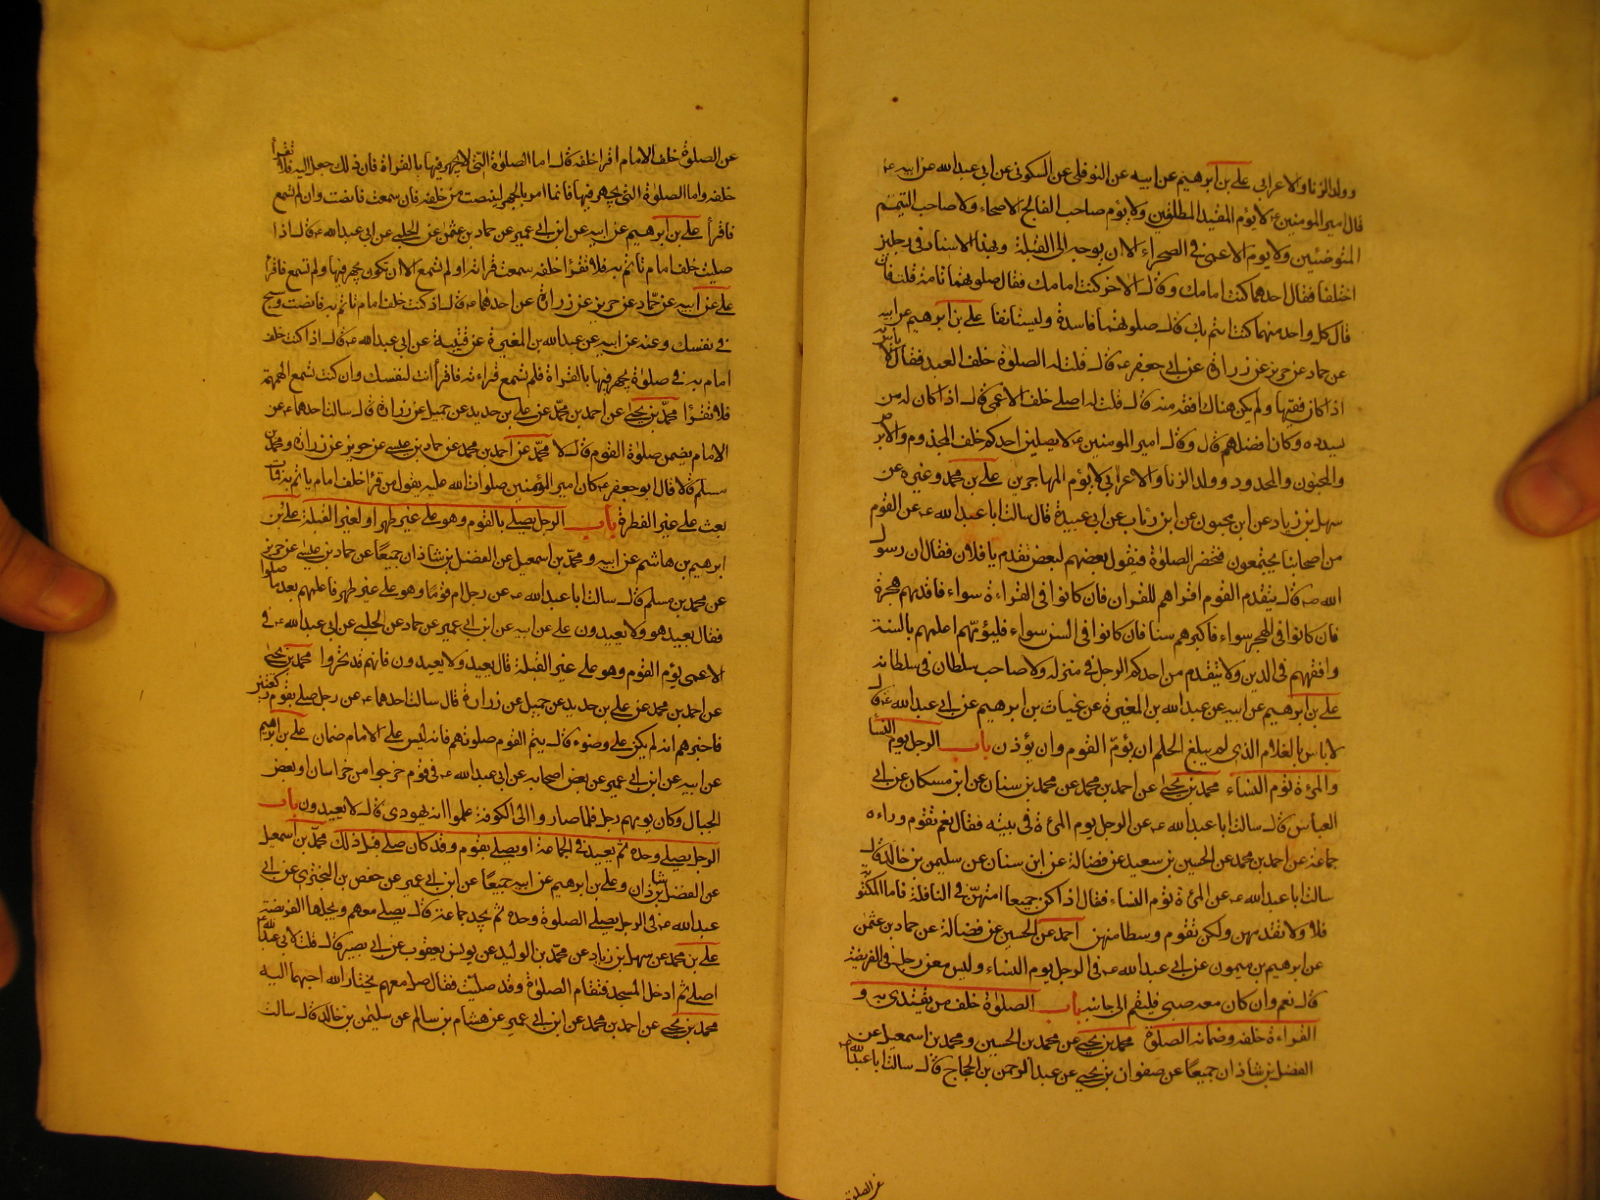 وولد الزنا والاعرابى على بن ابرهيم عن ابيه عن النوفلى عن السكونى عن ابى عبدالله عن ابيه ع
قال امير المومنين ع لا يؤم المقيد المطلقين ولا يؤم صاحب الفالج الاصحاء ولا صاحب التيمم
المتوضئين ولا يوم الاعمى فى الصحراء الا ان يوجه الى القبلة وبهذا الاسناد فى رجلين
اختلفا فقال احدهما كنت امامك وقال الاخر كنت امامك فقال صلوتهما تامة قلت فان
قال كل واحد منهما كنت ائتم بك قال صلوتهما فاسدة وليستانفا على بن ابرهيم عن ابيه
عن حماد عن حريز عن زرارة عن ابى جعفر ع قال قلت له الصلوة خلف العبد فقال لا باس به
اذا كان فقيها ولم يكن هناك افقه منه قال قلت له اصلى خلف الاعمى قال اذا كان له من
يسدده وكان افضلهم قال وقال امير المومنين ع لا يصلين احدكم خلف المجذوم والابرص
والمجنون والمحدود وولد الزنا والاعرابى لا يؤم المهاجرين على بن محمد وغيره عن
سهل بن زياد عن ابن محبوب عن ابن رئاب عن ابى عبيدة قال سالت ابا عبدالله ع عن القوم
من اصحابنا يجتمعون فتحضر الصلوة فيقول بعضهم لبعض تقدم يا فلان فقال ان رسول
الله ص قال يتقدم القوم اقراهم للقران فان كانوا فى القراءة سواء فاقدمهم هجرة
فان كانوا فى الهجرة سواء فاكبرهم سنا فان كانوا فى السن سواء فليؤمهم اعلمهم بالسنة
وافقههم فى الدين ولا يتقدم من احدكم الرجل فى منزله ولا صاحب سلطان فى سلطانه
على بن ابرهيم عن ابيه عن عبدالله بن المغيرة عن غياث بن ابرهيم عن ابى عبدالله ع قال
لا باس بالغلام الذى لم يبلغ الحلم ان يؤم القوم وان يؤذن باب الرجل يوم النسا
والمرءة تؤم النساء محمد بن يحيى عن احمد بن محمد عن محمد بن سنان عن ابن مسكان عن ابى
العباس قال سالت ابا عبدالله ع عن الرجل يوم المرءة فى بيته فقال نعم تقوم وراءه
جماعة عن احمد بن محمد عن الحسين بن سعيد عن فضالة عن ابن سنان عن سليمن بن خالد قال
سالت ابا عبدالله ع عن المرءة تؤم النساء فقال اذا كن جميعا امتهن فى النافلة فاما المكتوبة
فلا ولا تقدمهن ولكن تقوم وسطا منهن احمد عن الحسين عن فضالة عن حماد بن عثمن
عن ابرهيم بن ميمون عن ابى عبدالله ع فى الرجل يوم النساء وليس معهن رجل فى الفريضة
قال نعم وان كان معه صبى فليقم الى جانبه باب الصلوة خلف من يقتدى به و
القراءة خلفه وضمانه الصلوة محمد بن يحيى عن محمد بن الحسين ومحمد بن اسمعيل عن
الفضل بن شاذان جميعا عن صفوان بن يحيى عن عبد الرحمن بن الحجاج قال سالت ابا عبدالله ع
عن الصلوة
عن الصلوة خلف الامام اقرا خلفه قال اما الصلوة التى لا يجهر فيها بالقراءة فان ذلك جعل اليه فلا تقرأ
خلفه واما الصلوة التى يجهر فيها فانما امر بالجهر لينصت من خلفه فان سمعت فانصت وان لم تسمع
فاقرأ على بن ابرهيم عن ابيه عن ابن ابى عمير عن حماد بن عثمن عن الحلبى عن ابى عبدالله ع قال اذا
صليت خلف امام تاتم به فلا تقرأ خلفه سمعت قرائته او لم تسمع الا ان تكون يجهر فيها ولم تسمع فاقرأ
على عن ابيه عن حماد عن حريز عن زرارة عن احدهما ع قال اذ كنت خلف امام تاتم به فانصت وسبح
فى نفسك وعنه عن ابيه عن عبدالله بن المغيرة عن قتيبة عن ابى عبدالله ع قال اذا كنت خلف
امام به فى صلوة يجهر فيها بالقراءة فلم تسمع قراءته فاقرأ انت لنفسك وان كنت تسمع الهمهمة
فلا تقرأ محمد بن يحيى عن احمد بن محمد عن على بن حديد عن جميل عن زرارة قال سالت احدهما ع عن
الامام يضمن صلوة القوم قال لا محمد عن احمد بن محمد عن حماد بن عيسى عن حريز عن زرارة ومحمد بن
مسلم قالا قال ابو جعفر ع كان امير المؤمنين صلوات الله عليه يقول من قرأ خلف امام ياتم به فمات
بعث على غير الفطرة باب الرجل يصلى بالقوم وهو على غير طهر او لغير القبلة على بن
ابرهيم بن هاشم عن ابيه ومحمد بن اسمعيل عن الفضل بن شاذان جميعا عن حماد بن عيسى عن حريز
عن محمد بن مسلم قال سالت ابا عبدالله ع عن رجل ام قوما وهو على غير طهر فاعلمهم بعد ما صلوا
فقال يعيد هو ولا يعيدون على عن ابيه عن ابن ابى عمير عن حماد عن الحلبى عن ابى عبدالله ع فى
الاعمى يؤم القوم وهو على غير القبلة قال يعيد ولا يعيدون فانهم قد تحروا محمد بن يحيى
عن احمد بن محمد عن على بن حديد عن جميل عن زرارة قال سالت احدهما ع عن رجل صلى بقوم ركعتين
فاخبرهم انه لم يكن على وضوء قال يتم القوم صلوتهم فانه ليس على الامام ضمان على بن ابرهيم
عن ابيه عن ابن ابى عمير عن بعض اصحابه عن ابى عبدالله ع فى قوم خرجوا من خراسان او بعض
الجبال وكان يومهم رجل فلما صاروا الى الكوفة علموا انه يهودى قال لا يعيدون باب
الرجل يصلى وحده ثم يعيد فى الجماعة او يصلى بقوم وقد كان صلى قبل ذلك محمد بن اسمعيل
عن الفضل بن شاذان وعلى بن ابرهيم عن ابيه جميعا عن ابن ابى عمير عن حفص بن البخترى عن ابى
عبدالله ع فى الرجل يصلى الصلوة وحده ثم يجد جماعة قال يصلى معهم ويجعلها الفريضة
على بن محمد عن سهل بن زياد عن محمد بن الوليد عن يونس يعقوب عن ابى بصير قال قلت لابى عبدالله ع
اصلى ثم ادخل المسجد فتقام الصلوة وقد صليت فقال صل معهم يختار الله احبهما اليه
محمد بن يحيى عن احمد بن محمد عن ابن ابى عمير عن هشام بن سالم عن سليمن بن خالد قال سالت